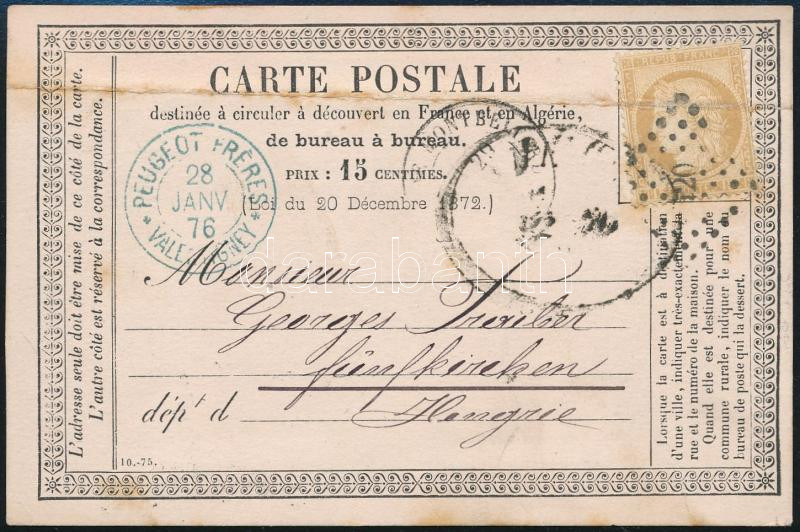 CARTE POSTALE
destinée à circuler à découvert en France et en Algérie,
de bureau à bureau.
PRIX : 15 CENTIMES.
(Loi du 20 Décembre 1872.)
PEUGEOT FRÈRES
28
JANV
76
* VALENTIGNEY *
REPUB FRANC
20
Monsieur
Georges
Fünfkirchen
dépt d Hongrie
L'adresse seule doit être mise de ce côté de la carte.
L'autre côté est réservé à la correspondance.
Lorsque la carte est à destination
d'une ville, indiquer très-exactement la
rue et le numéro de la maison.
Quand elle est destinée pour une
commune rurale, indiquer le nom du
bureau de poste qui la dessert.
10.-75.
darabanth